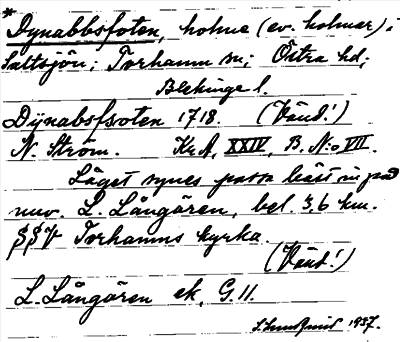 * Dynabbsfoten, holme (ev. holmar) i
Saltsjön; Torhamn sn; Östra hd;
Blekinge l.
Dynabsfsoten 1718. (Vänd!)
N. Ström. KrA, XXIV, B. N:o VII.
Läget synes passa bäst in på
nuv. L. Långören, bel. 3,6 km.
SSV Torhamns kyrka.
(Vänd!)
L. Långören ek. G. 11.
1937.